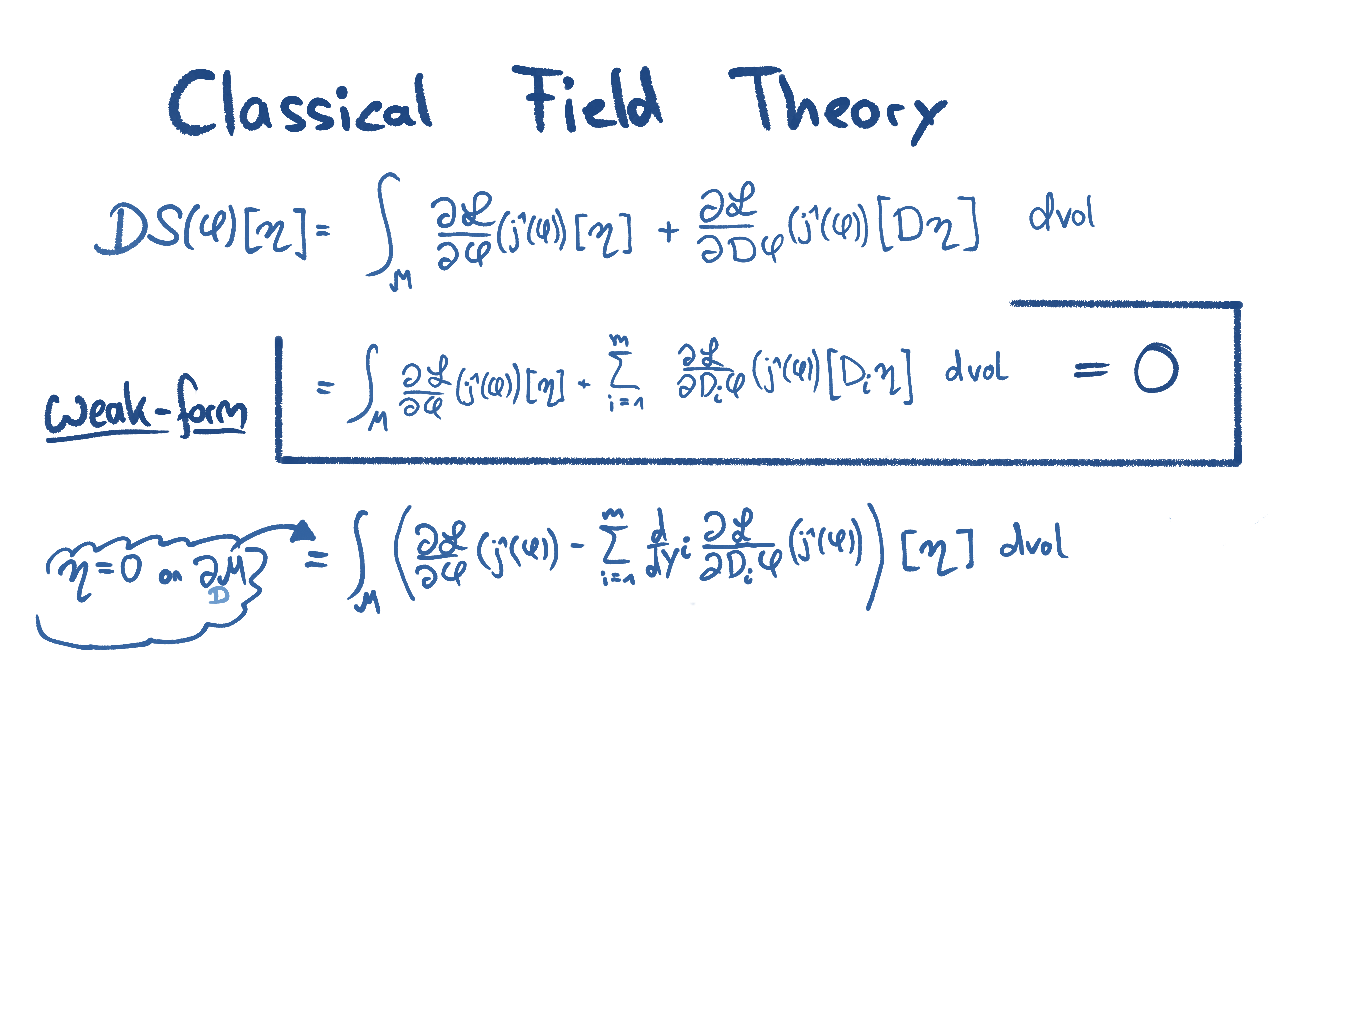 Classical Field Theory
DS(φ)[η] = ∫_M ∂ℒ/∂φ (j¹(φ))[η] + ∂ℒ/∂Dφ (j¹(φ))[Dη] dvol
weak-form = ∫_M ∂ℒ/∂φ (j¹(φ))[η] + ∑_{i=1}^m ∂ℒ/∂D_iφ (j¹(φ))[D_iη] dvol = 0
η=0 on ∂M_D = ∫_M (∂ℒ/∂φ (j¹(φ)) - ∑_{i=1}^m d/dyⁱ ∂ℒ/∂D_iφ (j¹(φ))) [η] dvol